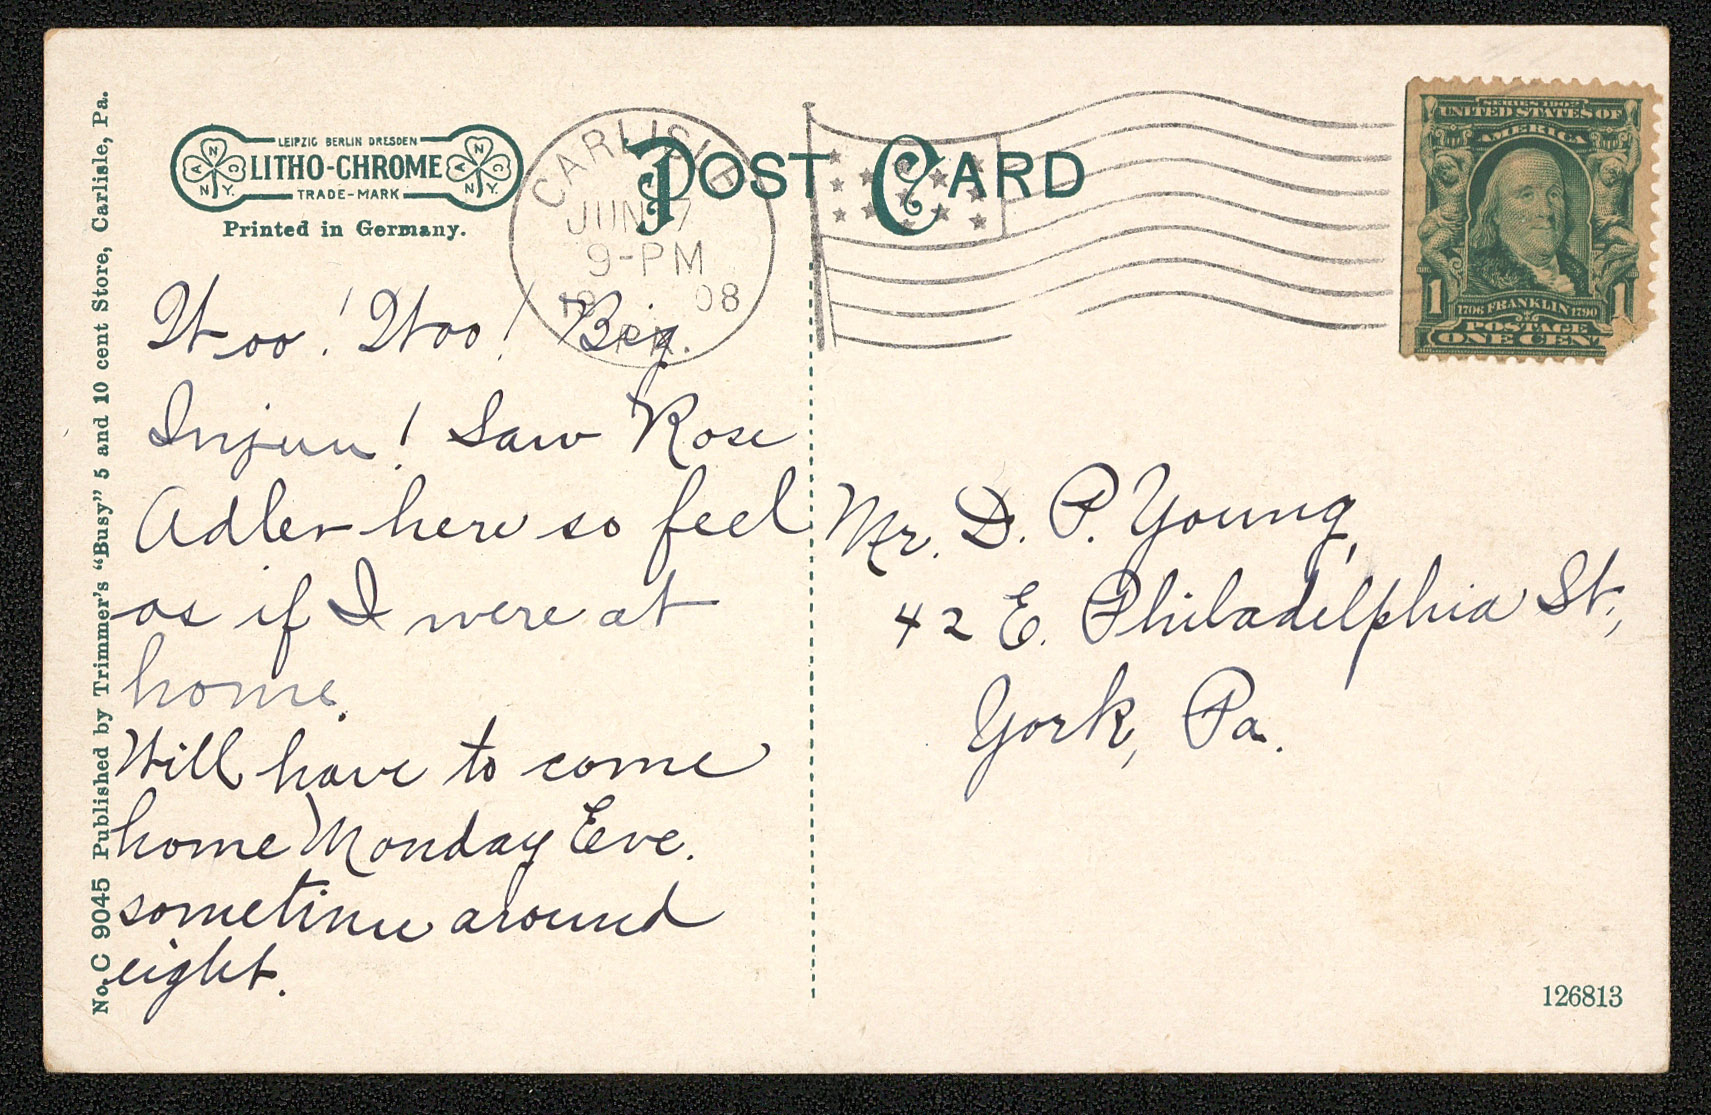 No. C 9045 Published by Trimmer's "Busy" 5 and 10 cent Store, Carlisle, Pa.
LEIPZIG BERLIN DRESDEN
LITHO-CHROME
TRADE-MARK
A N D N.Y.
A N C N.Y.
Printed in Germany.
POST CARD
CARLISLE
JUN 7
9-PM
1908
PA.
SERIES 1902
UNITED STATES OF
AMERICA
1 1
1706 FRANKLIN 1790
POSTAGE
ONE CENT
Woo! Woo! Big
Injun! Saw Rose
Adler here so feel
as if I were at
home.
Will have to come
home Monday Eve.
sometime around
eight.
Mr. D. P. Young,
42 E. Philadelphia St.,
York, Pa.
126813